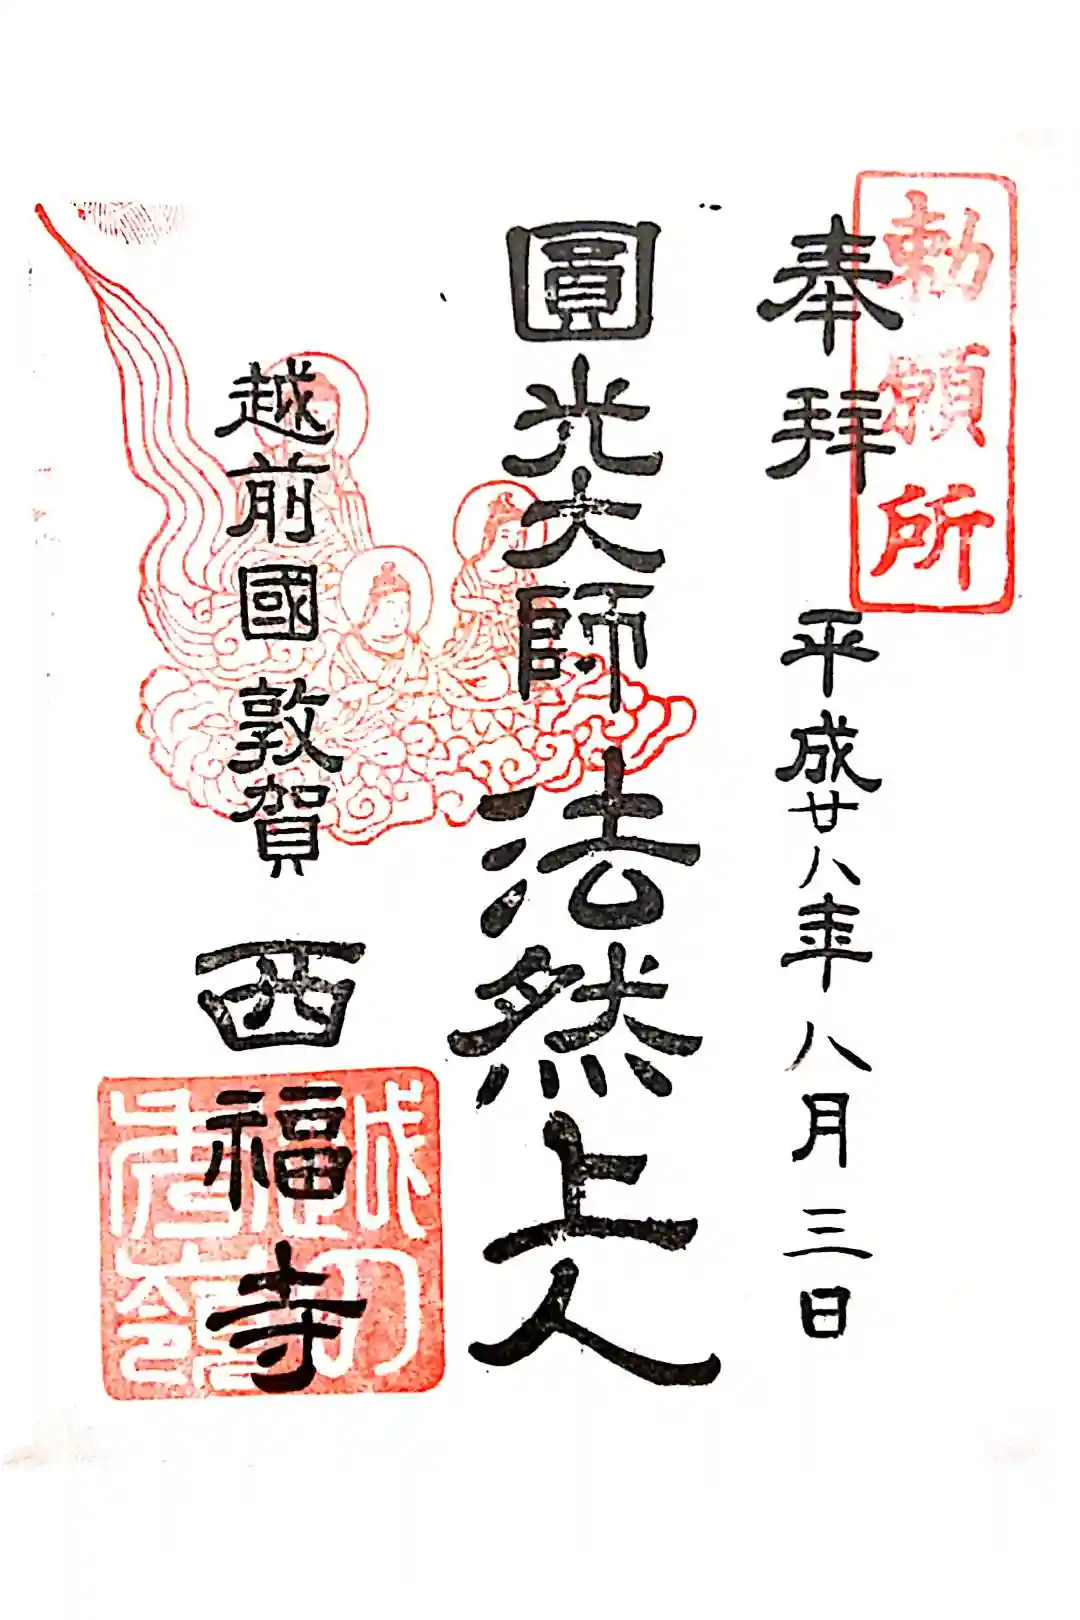 勅願所
奉拜
平成廿八年八月三日
圓光大師法然上人
越前國敦賀
西福寺